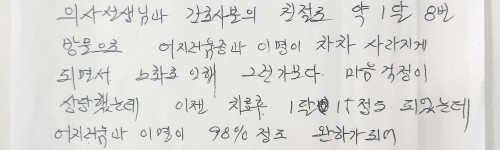 의사선생님과 간호사분의 친절로 약 1달 8번
방문으로 어지러움증과 이명이 차차 사라지게
되면서 노화로 인해 그런가보다. 마음 걱정이
상당했는데 이젠 치료후 1달 정도 되었는데
어지러움과 이명이 98% 정도 완화가되어